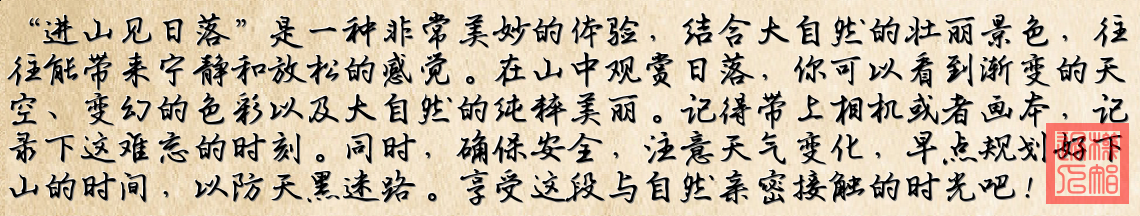 “进山见日落”是一种非常美妙的体验，结合大自然的壮丽景色，往
往能带来宁静和放松的感觉。在山中观赏日落，你可以看到渐变的天
空、变幻的色彩以及大自然的纯粹美丽。记得带上相机或者画本，记
录下这难忘的时刻。同时，确保安全，注意天气变化，早点规划好下
山的时间，以防天黑迷路。享受这段与自然亲密接触的时光吧！